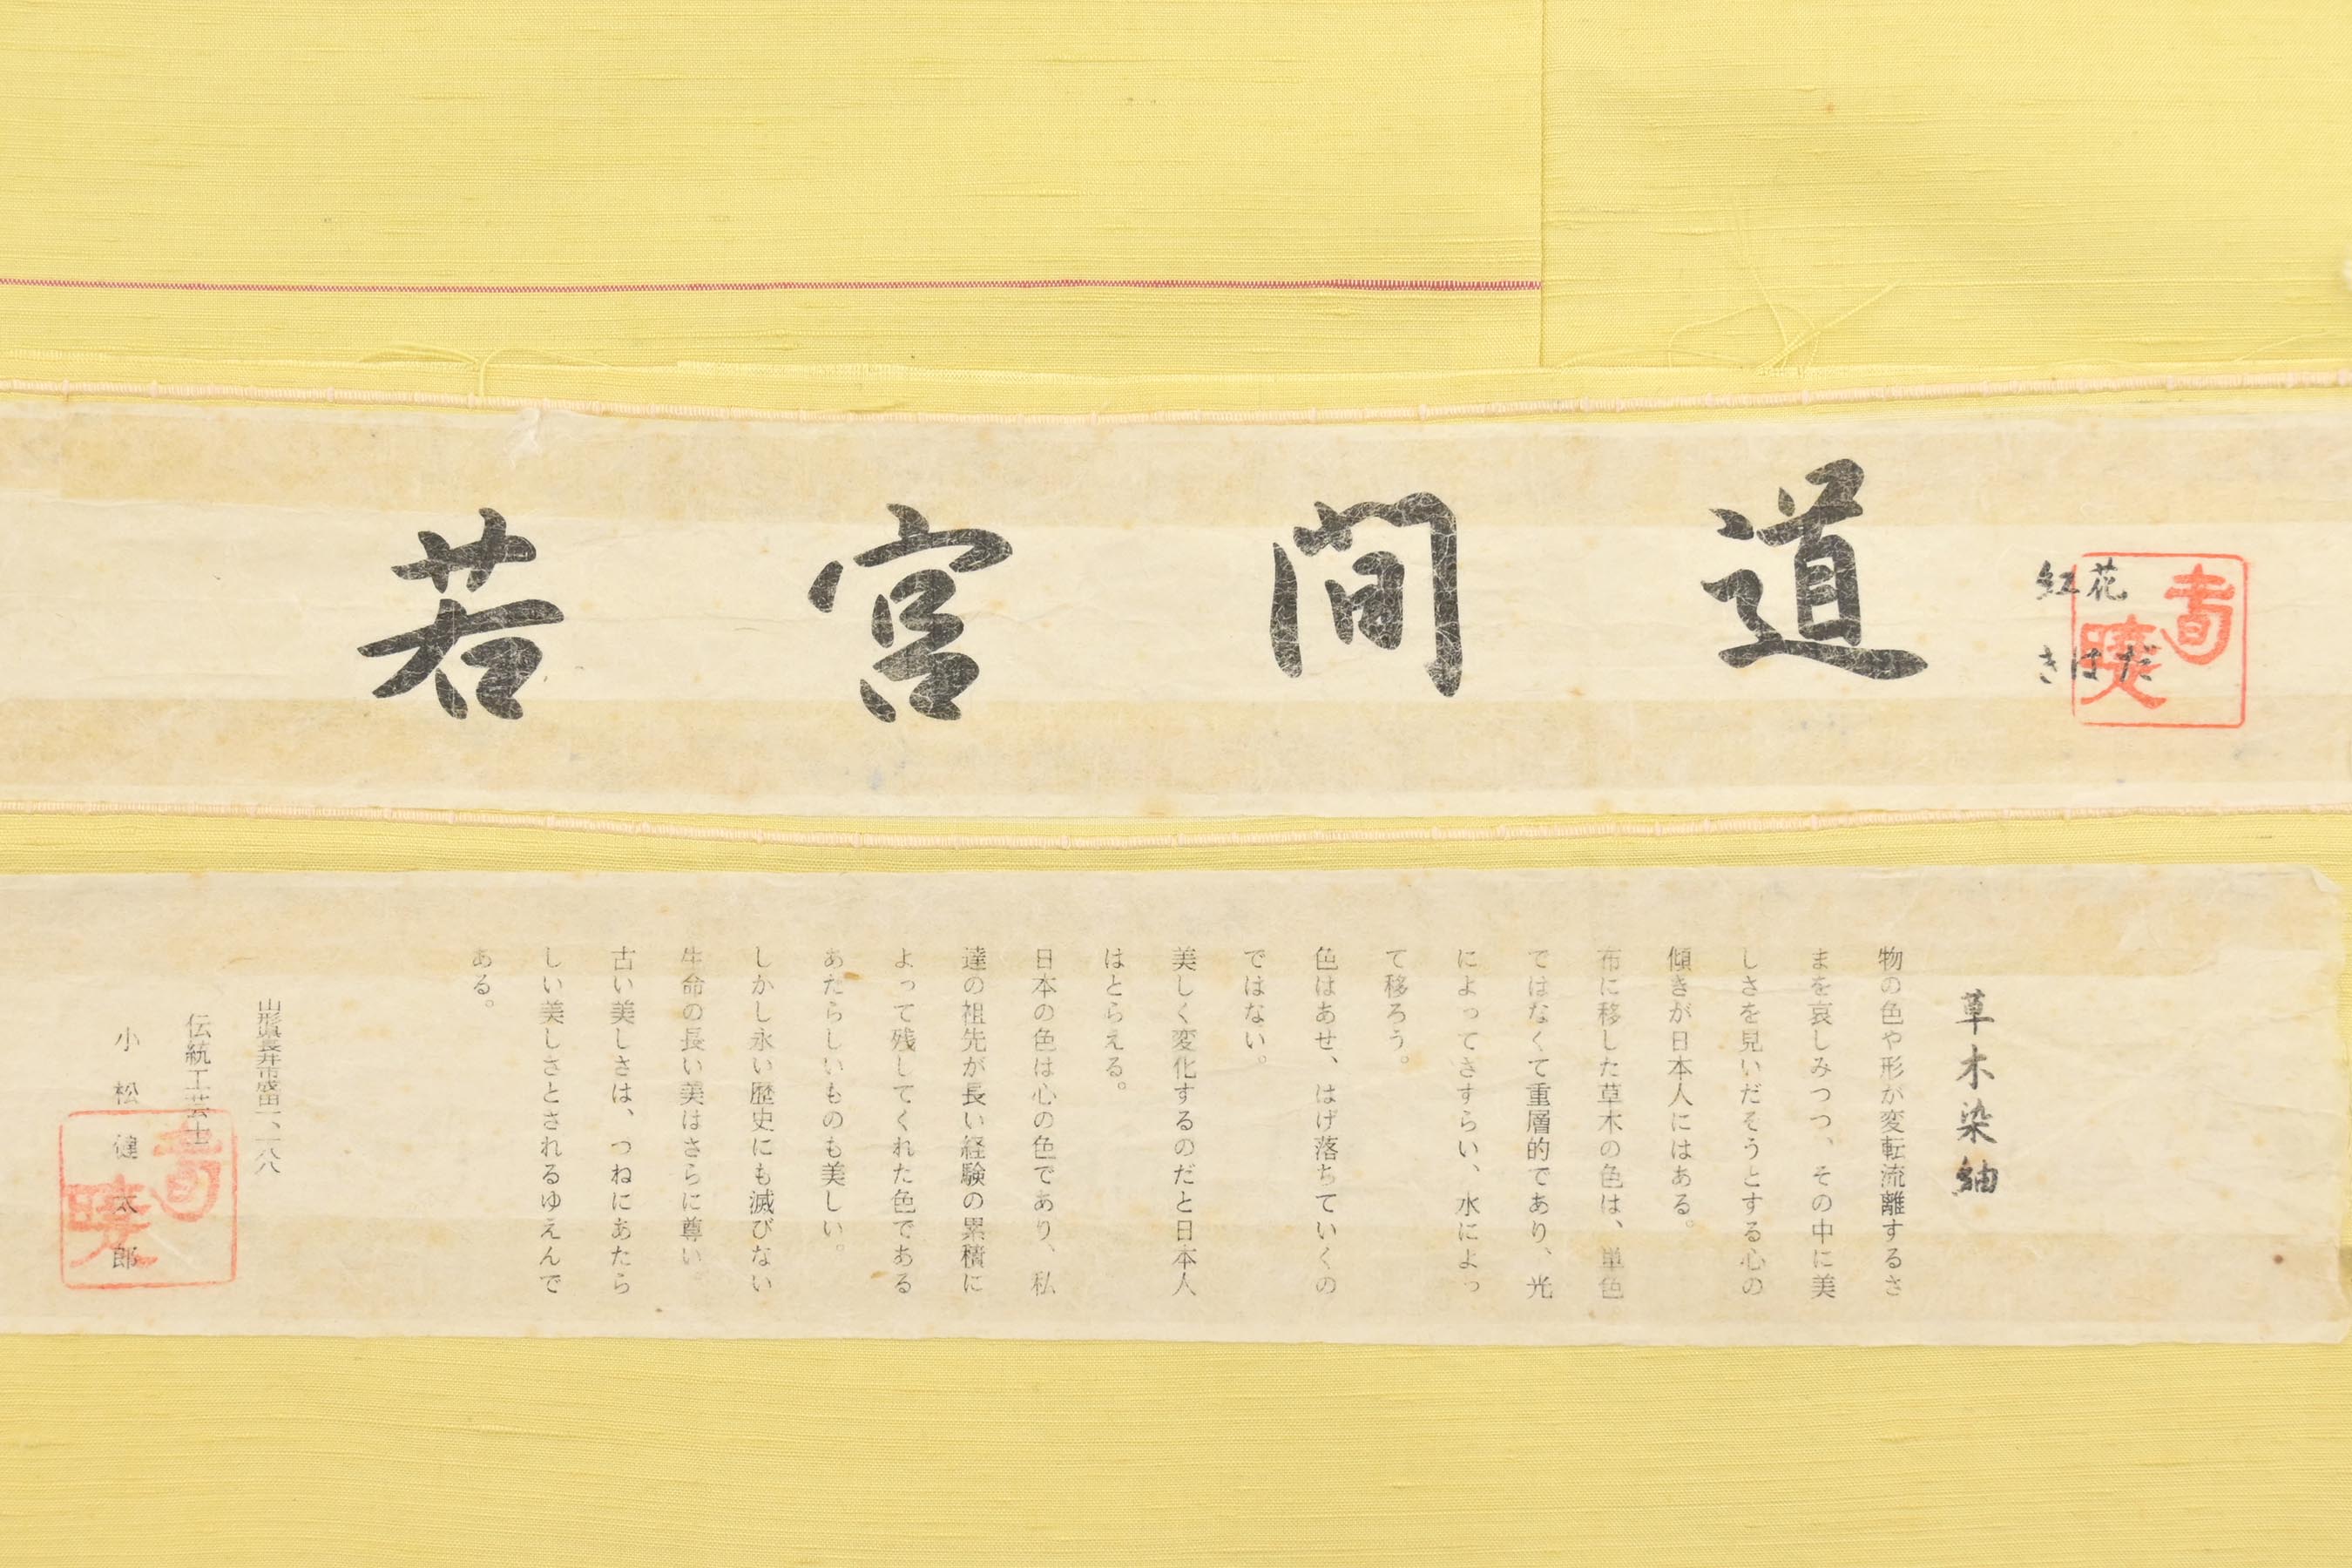 若宮間道
紅花
きはだ
草木染紬
物の色や形が変転流離するさ
まを哀しみつつ、その中に美
しさを見いだそうとする心の
傾きが日本人にはある。
布に移した草木の色は、単色
ではなくて重層的であり、光
によってさすらい、水によっ
て移ろう。
色はあせ、はげ落ちていくの
ではない。
美しく変化するのだと日本人
はとらえる。
日本の色は心の色であり、私
達の祖先が長い経験の累積に
よって残してくれた色である
あたらしいものも美しい。
しかし永い歴史にも滅びない
生命の長い美はさらに尊い。
古い美しさは、つねにあたら
しい美しさとされるゆえんで
ある。
山形県長井市盛田一、一六八
伝統工芸士
小松健太郎